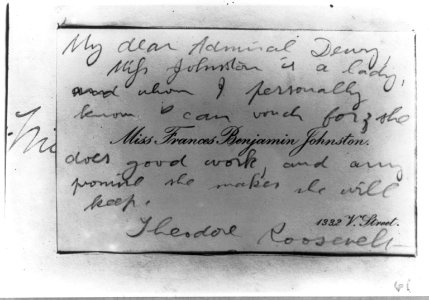 My dear Admiral Dewy
Miss Johnston is a lady,
and whom I personally
know. can vouch for; she
Miss Frances Benjamin Johnston.
does good work, and any
promise she makes she will
keep.
1332 V. Street.
Theodore Roosevelt